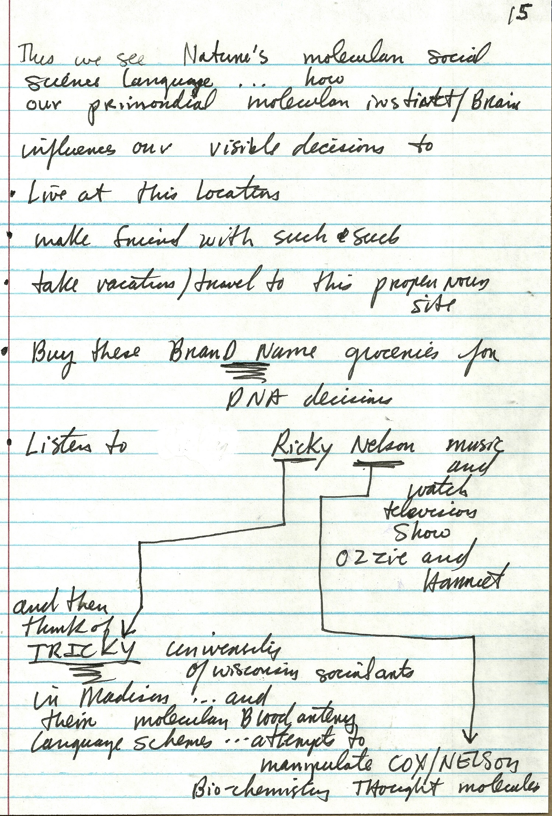 15
Thus we see Nature's molecular social
science language ... how
our primordial molecular instinct/Brain
influences our visible decisions to
• Live at this location
• make friend with such & such
• take vacation/travel to this proper noun
site
• Buy these BranD Name groceries for
DNA decisions
• Listen to Ricky Nelson music
and
watch
television
Show
Ozzie and
Harriet
and then
think of
TRICKY University
of Wisconsin social ants
in Madison ... and
their molecular Blood, artery
language schemes ... attempts to
manipulate COX/NELSON
Bio-chemistry Thought molecules